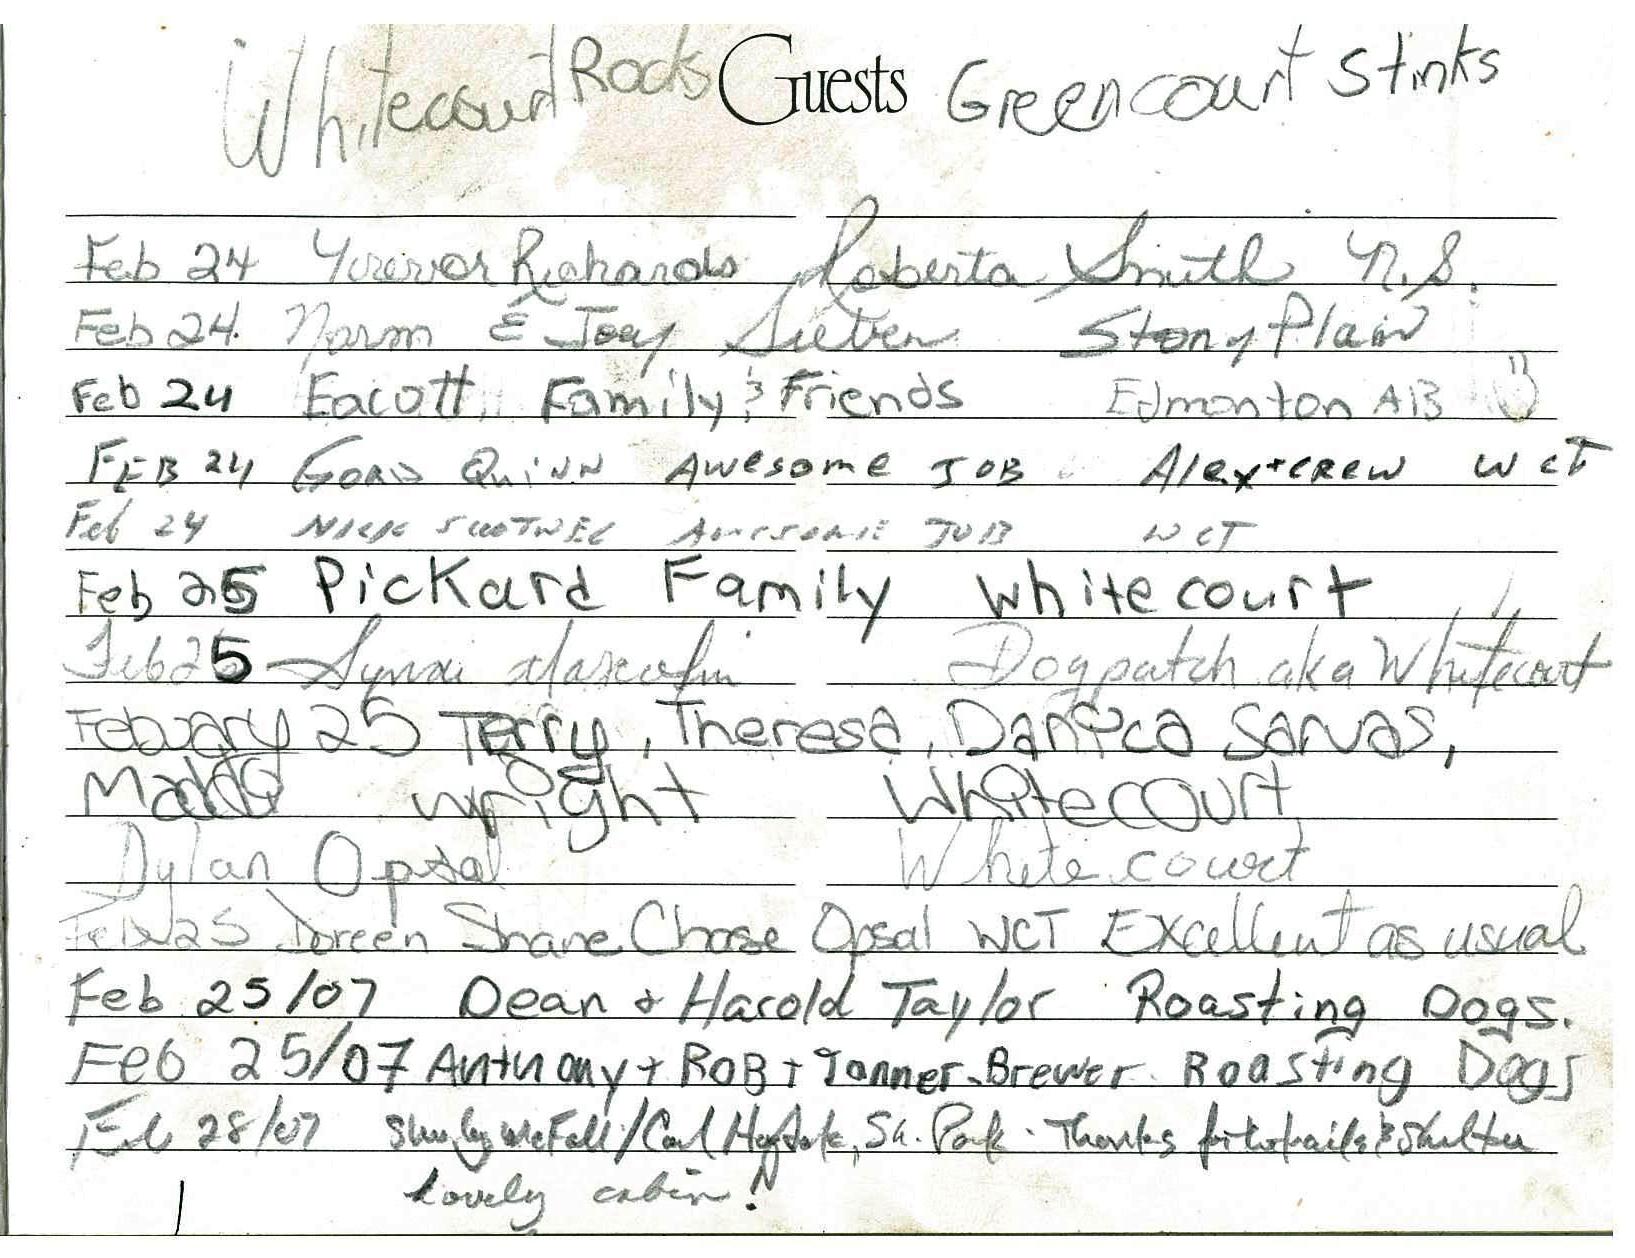 Whitecourt Rocks Guests Greencourt Stinks
Feb 24 Trevor Richards Roberta Smith N.S.
Feb 24. Norm & Joey Sieben Stony Plain
Feb 24 Eacott Family & Friends Edmonton AB
FEB 24 GORD QuiNN AWESOME JOB Alex + CREW WCT
Feb 24 NICK AWESOME JOB WCT
Feb 25 Pickard Family Whitecourt
Feb 25 Dogpatch aka Whitecourt
Febuary 25 Terry, Theresa, Danica Sarvas,
Wright Whitecourt
Dylan Opsal Whitecourt
Feb 25 Doreen Shane Chase Opsal WCT Excellent as usual
Feb 25/07 Dean + Harold Taylor Roasting Dogs.
Feb 25/07 Anthony + ROB + Tanner Brewer Roasting Dogs
Feb 28/07 McFall / Carl Sh. Park. Thanks & Shelter
Lovely cabin!